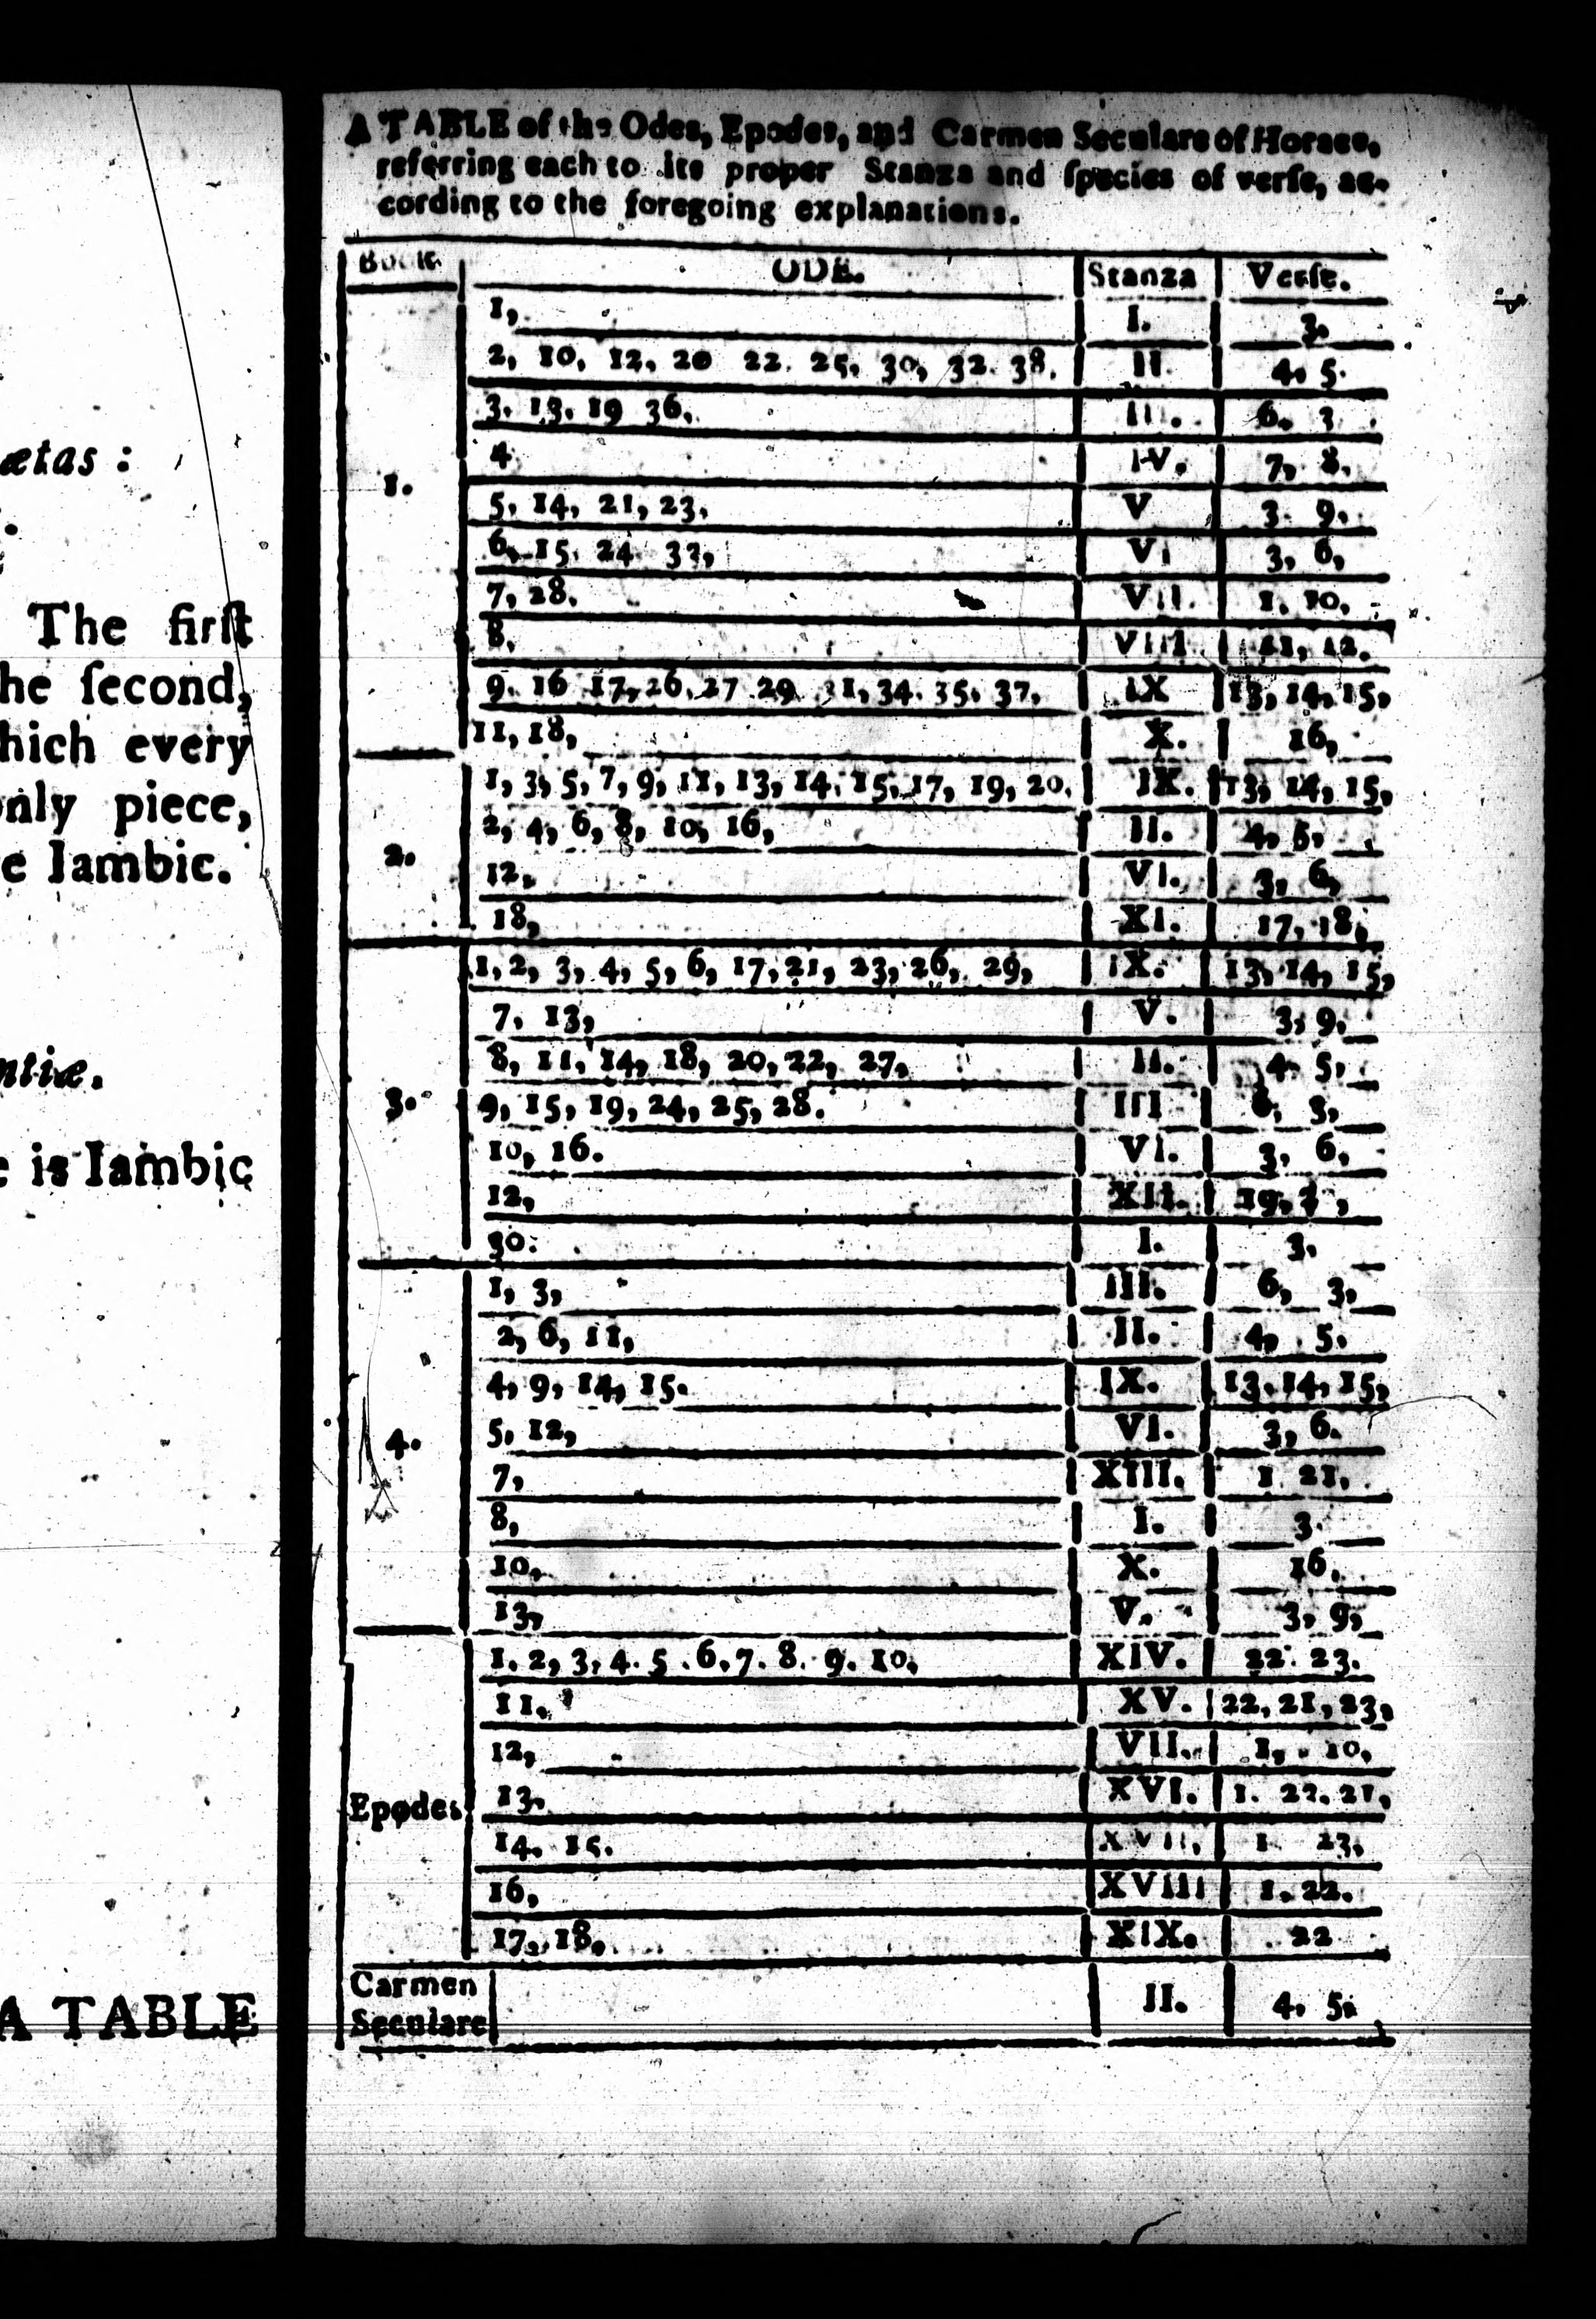 ætas :
The firſt
he ſecond,
hich every
only piece,
e Iambic.
ntiæ.
e is Iambic
A TABLE
A TABLE of the Odes, Epodes, and Carmen Seculare of Horace,
referring each to its proper Stanza and ſpecies of verſe, ac-
cording to the foregoing explanations.
Book. ODE. Stanza Verſe.
1.
1, I. 3.
2, 10, 12, 20 22. 25, 30, 32. 38. II. 4, 5.
3. 13. 19 36. 6. 3.
4 IV. 7, 8.
5, 14, 21, 23. V 3. 9.
6, 15. 24 33, VI 3, 6,
7, 28. VII. 1. 10.
8. VIII 11, 12.
9. 16 17, 26, 27 29 31, 34. 35. 37. IX 13, 14, 15,
11, 18, X. 16,
2.
1, 3, 5, 7, 9, 11, 13, 14, 15, 17, 19, 20. IX. 13, 14, 15,
2, 4, 6, 8, 10, 16, II. 4, 5,
12, VI. 3, 6,
18, XI. 17, 18,
3.
1, 2, 3, 4, 5, 6, 17, 21, 23, 26, 29, IX. 13, 14, 15,
7, 13, V. 3, 9,
8, 11, 14, 18, 20, 22, 27, II. 4. 5,
9, 15, 19, 24, 25, 28. III 6, 3,
10, 16. VI. 3, 6,
12, XII. 19,
30. I. 3.
4.
1, 3, III. 6, 3,
2, 6, 11, II. 4, 5.
4, 9, 14, 15. IX. 13. 14, 15,
5, 12, VI. 3, 6.
7, XIII. 1 21,
8, I. 3.
10, X. 16.
13, V. 3, 9,
Epodes
1. 2, 3, 4. 5 .6, 7. 8. 9. 10. XIV. 22. 23.
11. XV. 22, 21, 23,
12, VII. 1, 10,
13. XVI. 1. 22. 21,
14. 15. XVII, 1 23,
16, XVIII 1. 22.
17, 18, XIX. 22
Carmen
Seculare II. 4, 5.